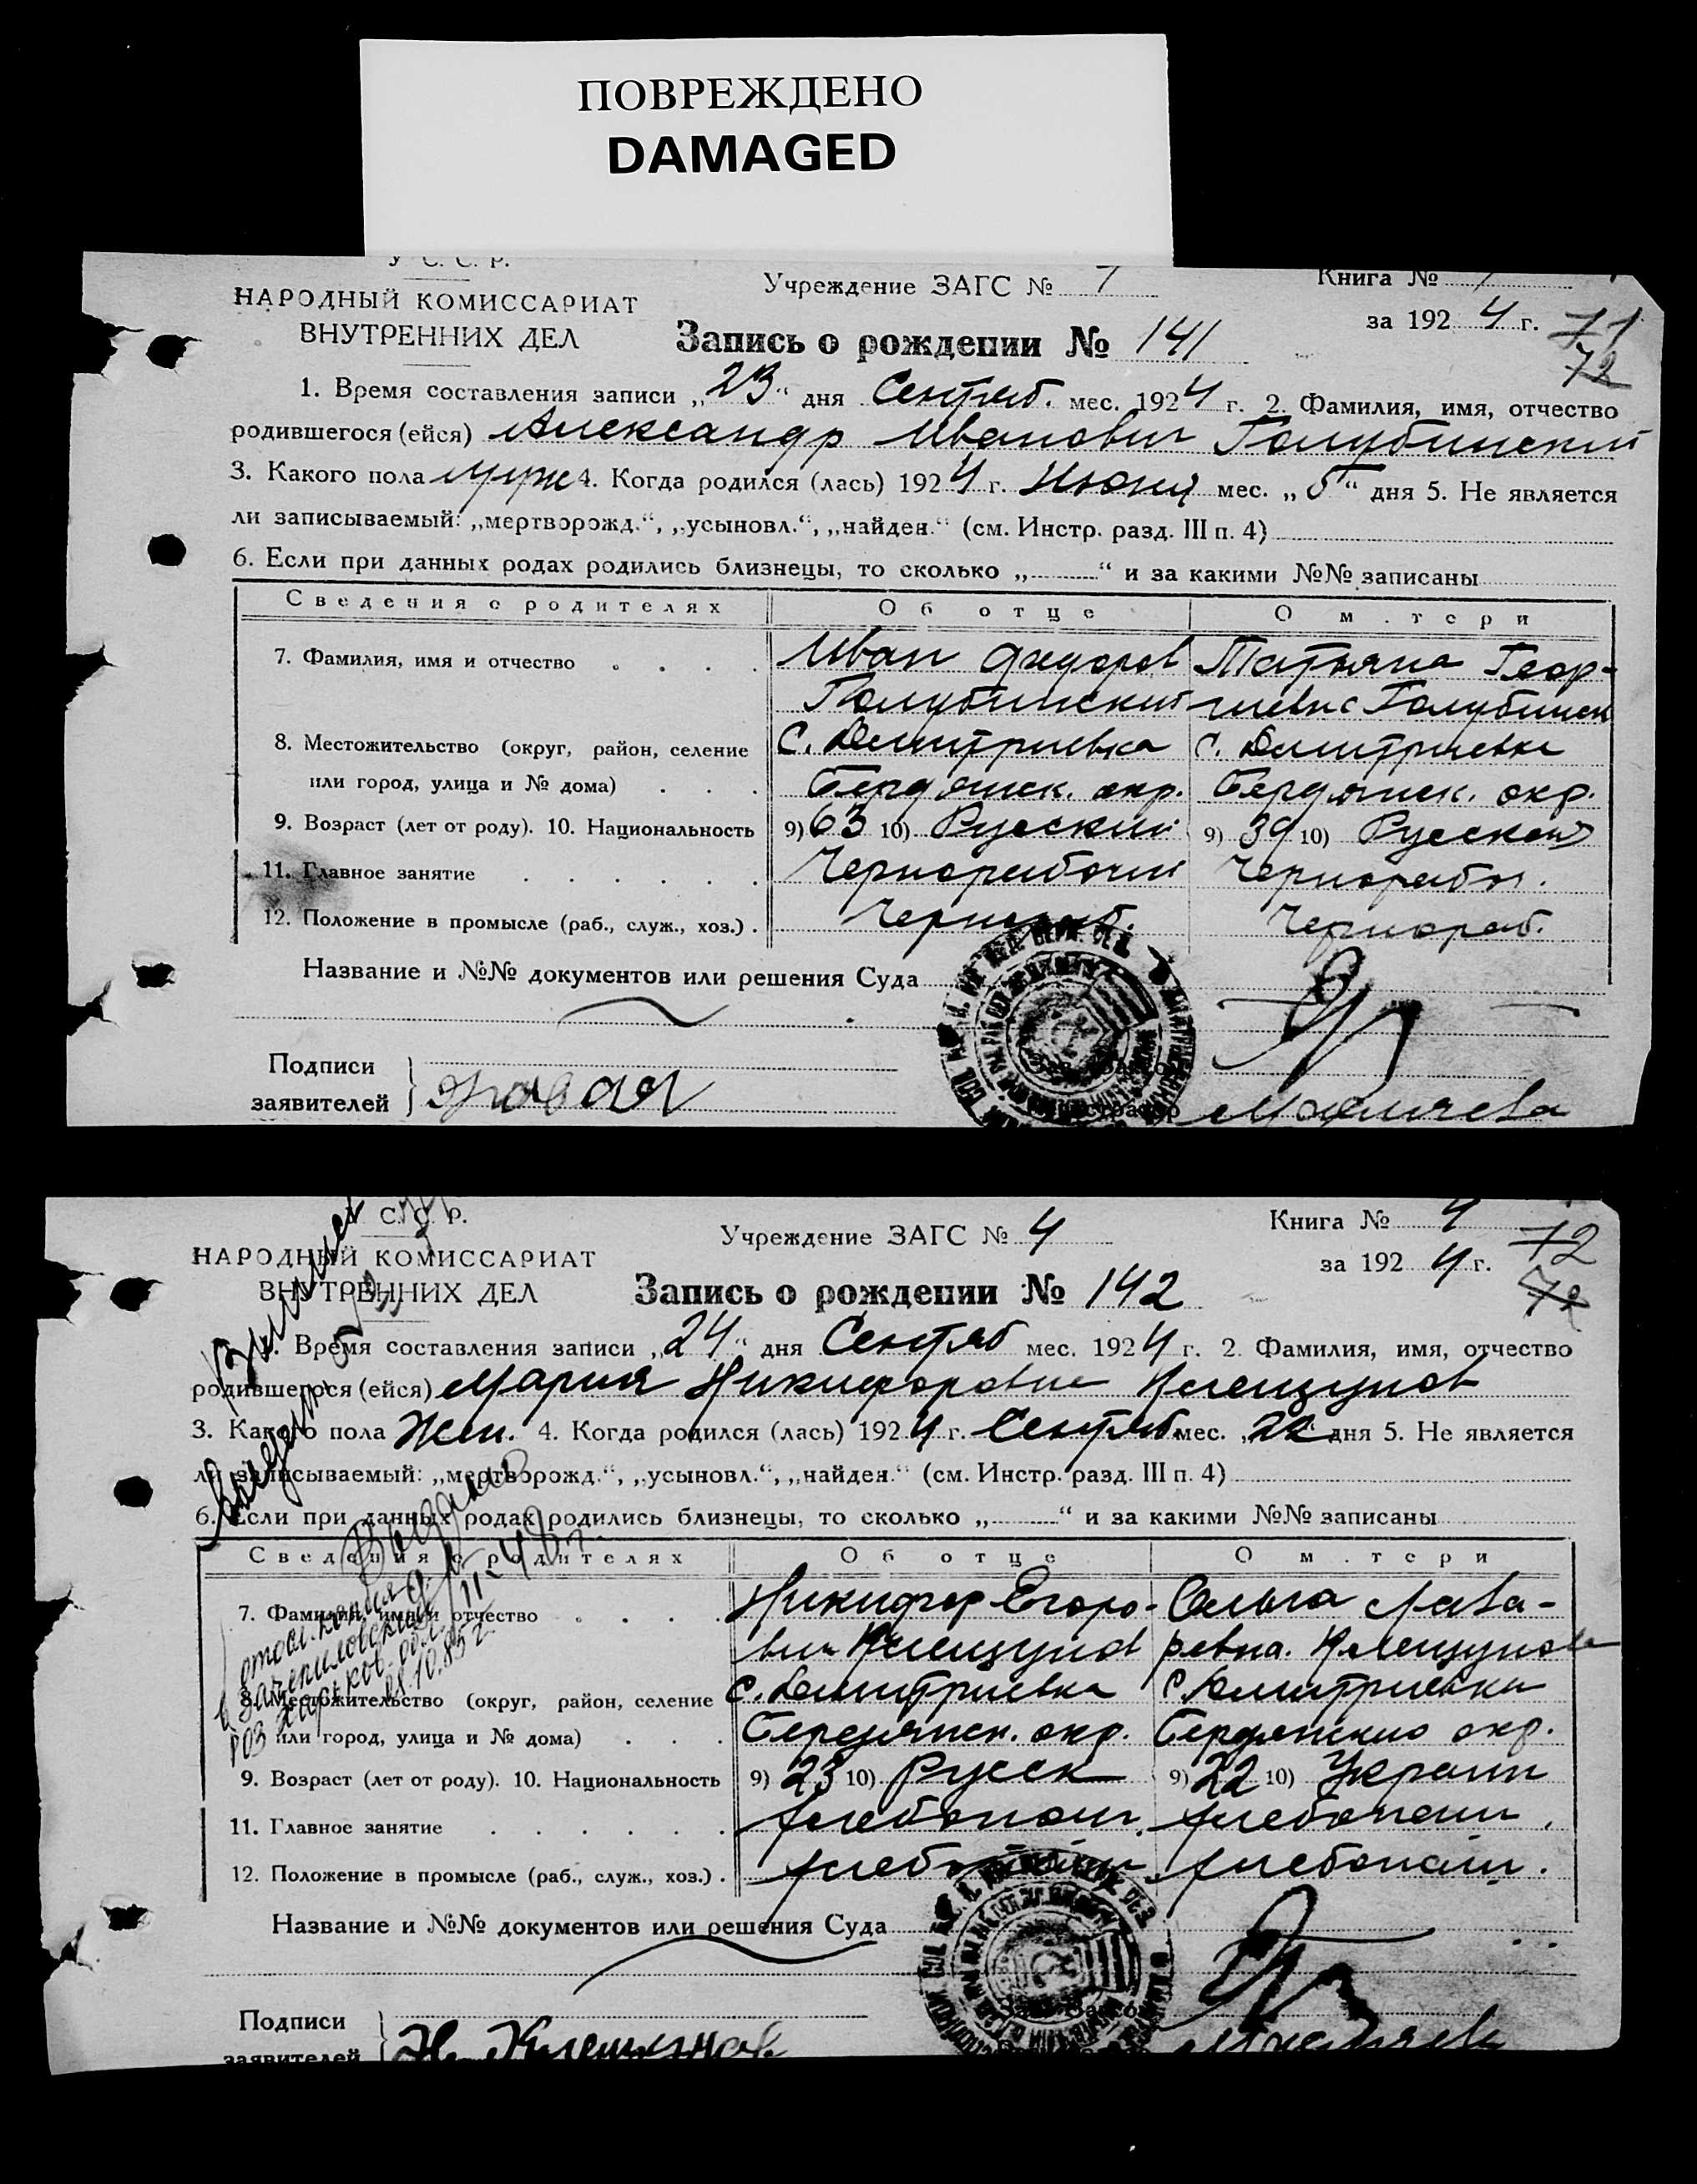 ПОВРЕЖДЕНО
DAMAGED
У С. С. Р.
НАРОДНЫЙ КОМИССАРИАТ
ВНУТРЕННИХ ДЕЛ
Учреждение ЗАГС №
Книга №
за 1924 г.
71
72
Запись о рождении № 141
1. Время составления записи „23“ дня Сентяб. мес. 1924 г. 2. Фамилия, имя, отчество
родившегося (ейся) Александр Иванович Голубинский
3. Какого пола муж 4. Когда родился (лась) 1924 г. Июня мес. „5“ дня 5. Не является
ли записываемый: „мертворожд.“, „усыновл.“, „найден.“ (см. Инстр. разд. III п. 4)
6. Если при данных родах родились близнецы, то сколько „“ и за какими №№ записаны
Сведения о родителях Об отце О м.тери
7. Фамилия, имя и отчество Иван Федоров Татьяна Геор-
Голубинский гиевна Голубинск
8. Местожительство (округ, район, селение С. Дмитриевка С. Дмитриевка
или город, улица и № дома) Бердянск. окр. Бердянск. окр.
9. Возраст (лет от роду). 10. Национальность 9) 63 10) Русский 9) 39 10) Русская
11. Главное занятие Чернорабочий Чернорабоч.
12. Положение в промысле (раб., служ., хоз.) Чернораб. Чернораб.
Название и №№ документов или решения Суда
Подписи
заявителей
С. С. Р.
НАРОДНЫЙ КОМИССАРИАТ
ВНУТРЕННИХ ДЕЛ
Учреждение ЗАГС № 4
Книга № 4
за 1924 г.
72
Запись о рождении № 142
Время составления записи „24“ дня Сентяб мес. 1924 г. 2. Фамилия, имя, отчество
родившегося (ейся) Мария Никифоровна Клещунов
3. Какого пола Жен. 4. Когда родился (лась) 1924 г. Сентяб мес. „22“ дня 5. Не является
ли записываемый: „мертворожд.“, „усыновл.“, „найден.“ (см. Инстр. разд. III п. 4)
6. Если при данных родах родились близнецы, то сколько „“ и за какими №№ записаны
Сведения о родителях Об отце О м.тери
7. Фамилия, имя и отчество Никифор Егоро- Ольга Лаза-
вич Клещунов ревна Клещунова
8. Местожительство (округ, район, селение С. Дмитриевка С. Дмитриевка
или город, улица и № дома) Бердянск. окр. Бердянского окр.
9. Возраст (лет от роду). 10. Национальность 9) 23 10) Русск 9) 22 10) Украин
11. Главное занятие хлебопаш. хлебопаш.
12. Положение в промысле (раб., служ., хоз.) хлебопаш. хлебопаш.
Название и №№ документов или решения Суда
Подписи
заявителей Н. Клещунов
отосл. копия
в Зачепиловский
РОЗ Харьков. обл.
28.10.85г.